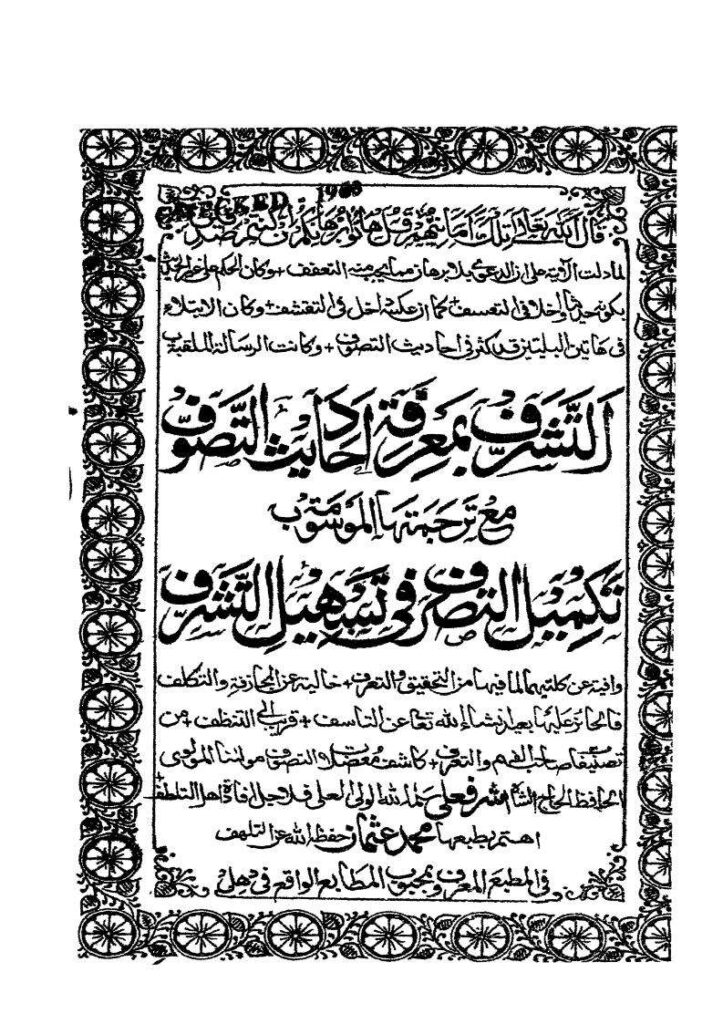 CHECKED 1968
قال الله تعالى تلك امانيهم قل هاتوا برهانكم ان كنتم صدقين
لما دلت الآية على ان الدعوى بلا برهان مما يجب منه التعفف + وكان الحكم على غير الحديث
بكونه حديثا داخلا فى التعسف + كما ان عكسه داخل فى التقشف + وكان الابتلاء
فى هاتين البليتين قد كثر فى احاديث التصوف + وكانت الرسالة الملقبة ب
التشرف بمعرفة احاديث التصوف
مع ترجمتها الموسومة ب
تكميل التصرف فى تسهيل التشرف
وافية عن كلتيهما لما فيها من التحقيق والتعرف + خالية عن المجازفة والتكلف
فالحائز عليها بعيد ان شاء الله تعالى عن التاسف + قريب الى التنظف + من
تصنيفات صاحب الفهم والتعرف + كاشف معضلات التصوف مولانا المولوى
الحافظ الحاج الشاه اشرف على مد الله الولى العلى لاجل افادة اهل التلطف
اهتم بطبعها محمد عثمان حفظه الله عن التلهف
فى المطبع المعروف بمحبوب المطابع الواقع فى دهلى